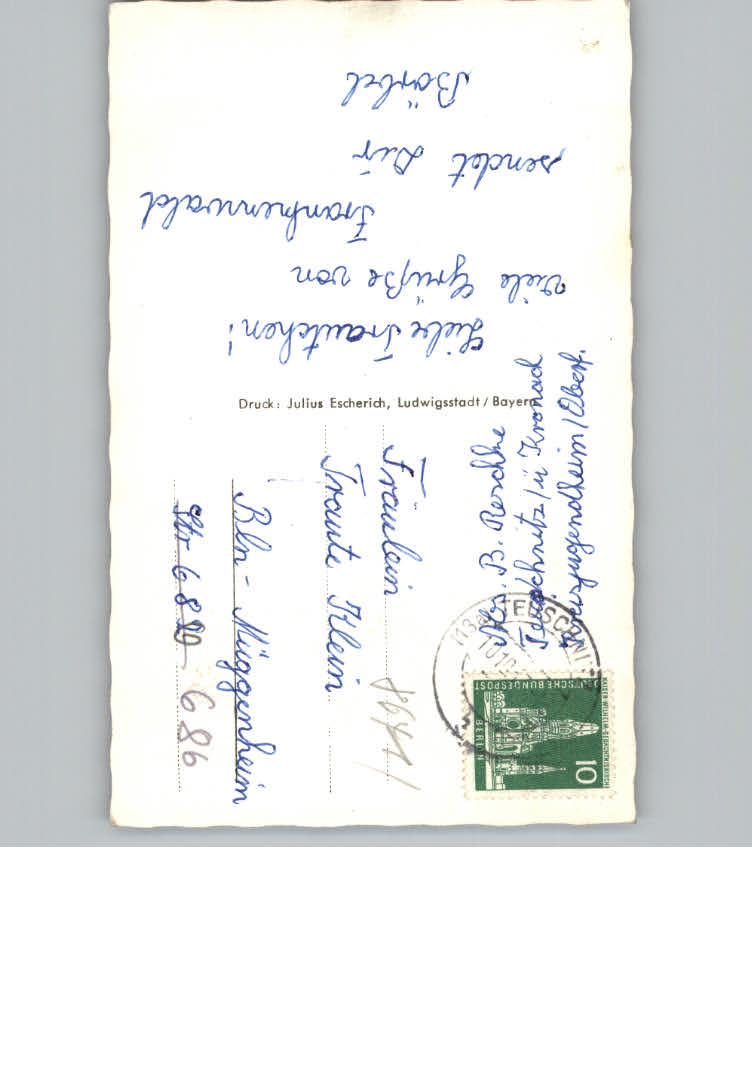 Liebe Trautchen!
viele Grüße von
Frankenwald
sendet Dir
Bärbel
Druck: Julius Escherich, Ludwigsstadt / Bayern
Abs. B. Reschke
Teuschnitz/ü Kronach
Kreisjugendheim/Oberf.
Fräulein
Traute Klein
Bln-Müggenheim
Str 680 686
8644/
(13a) TEUSCHNI
10
DEUTSCHE BUNDESPOST
BERLIN
KAISER-WILHELM-GEDÄCHTNISKIRCHE